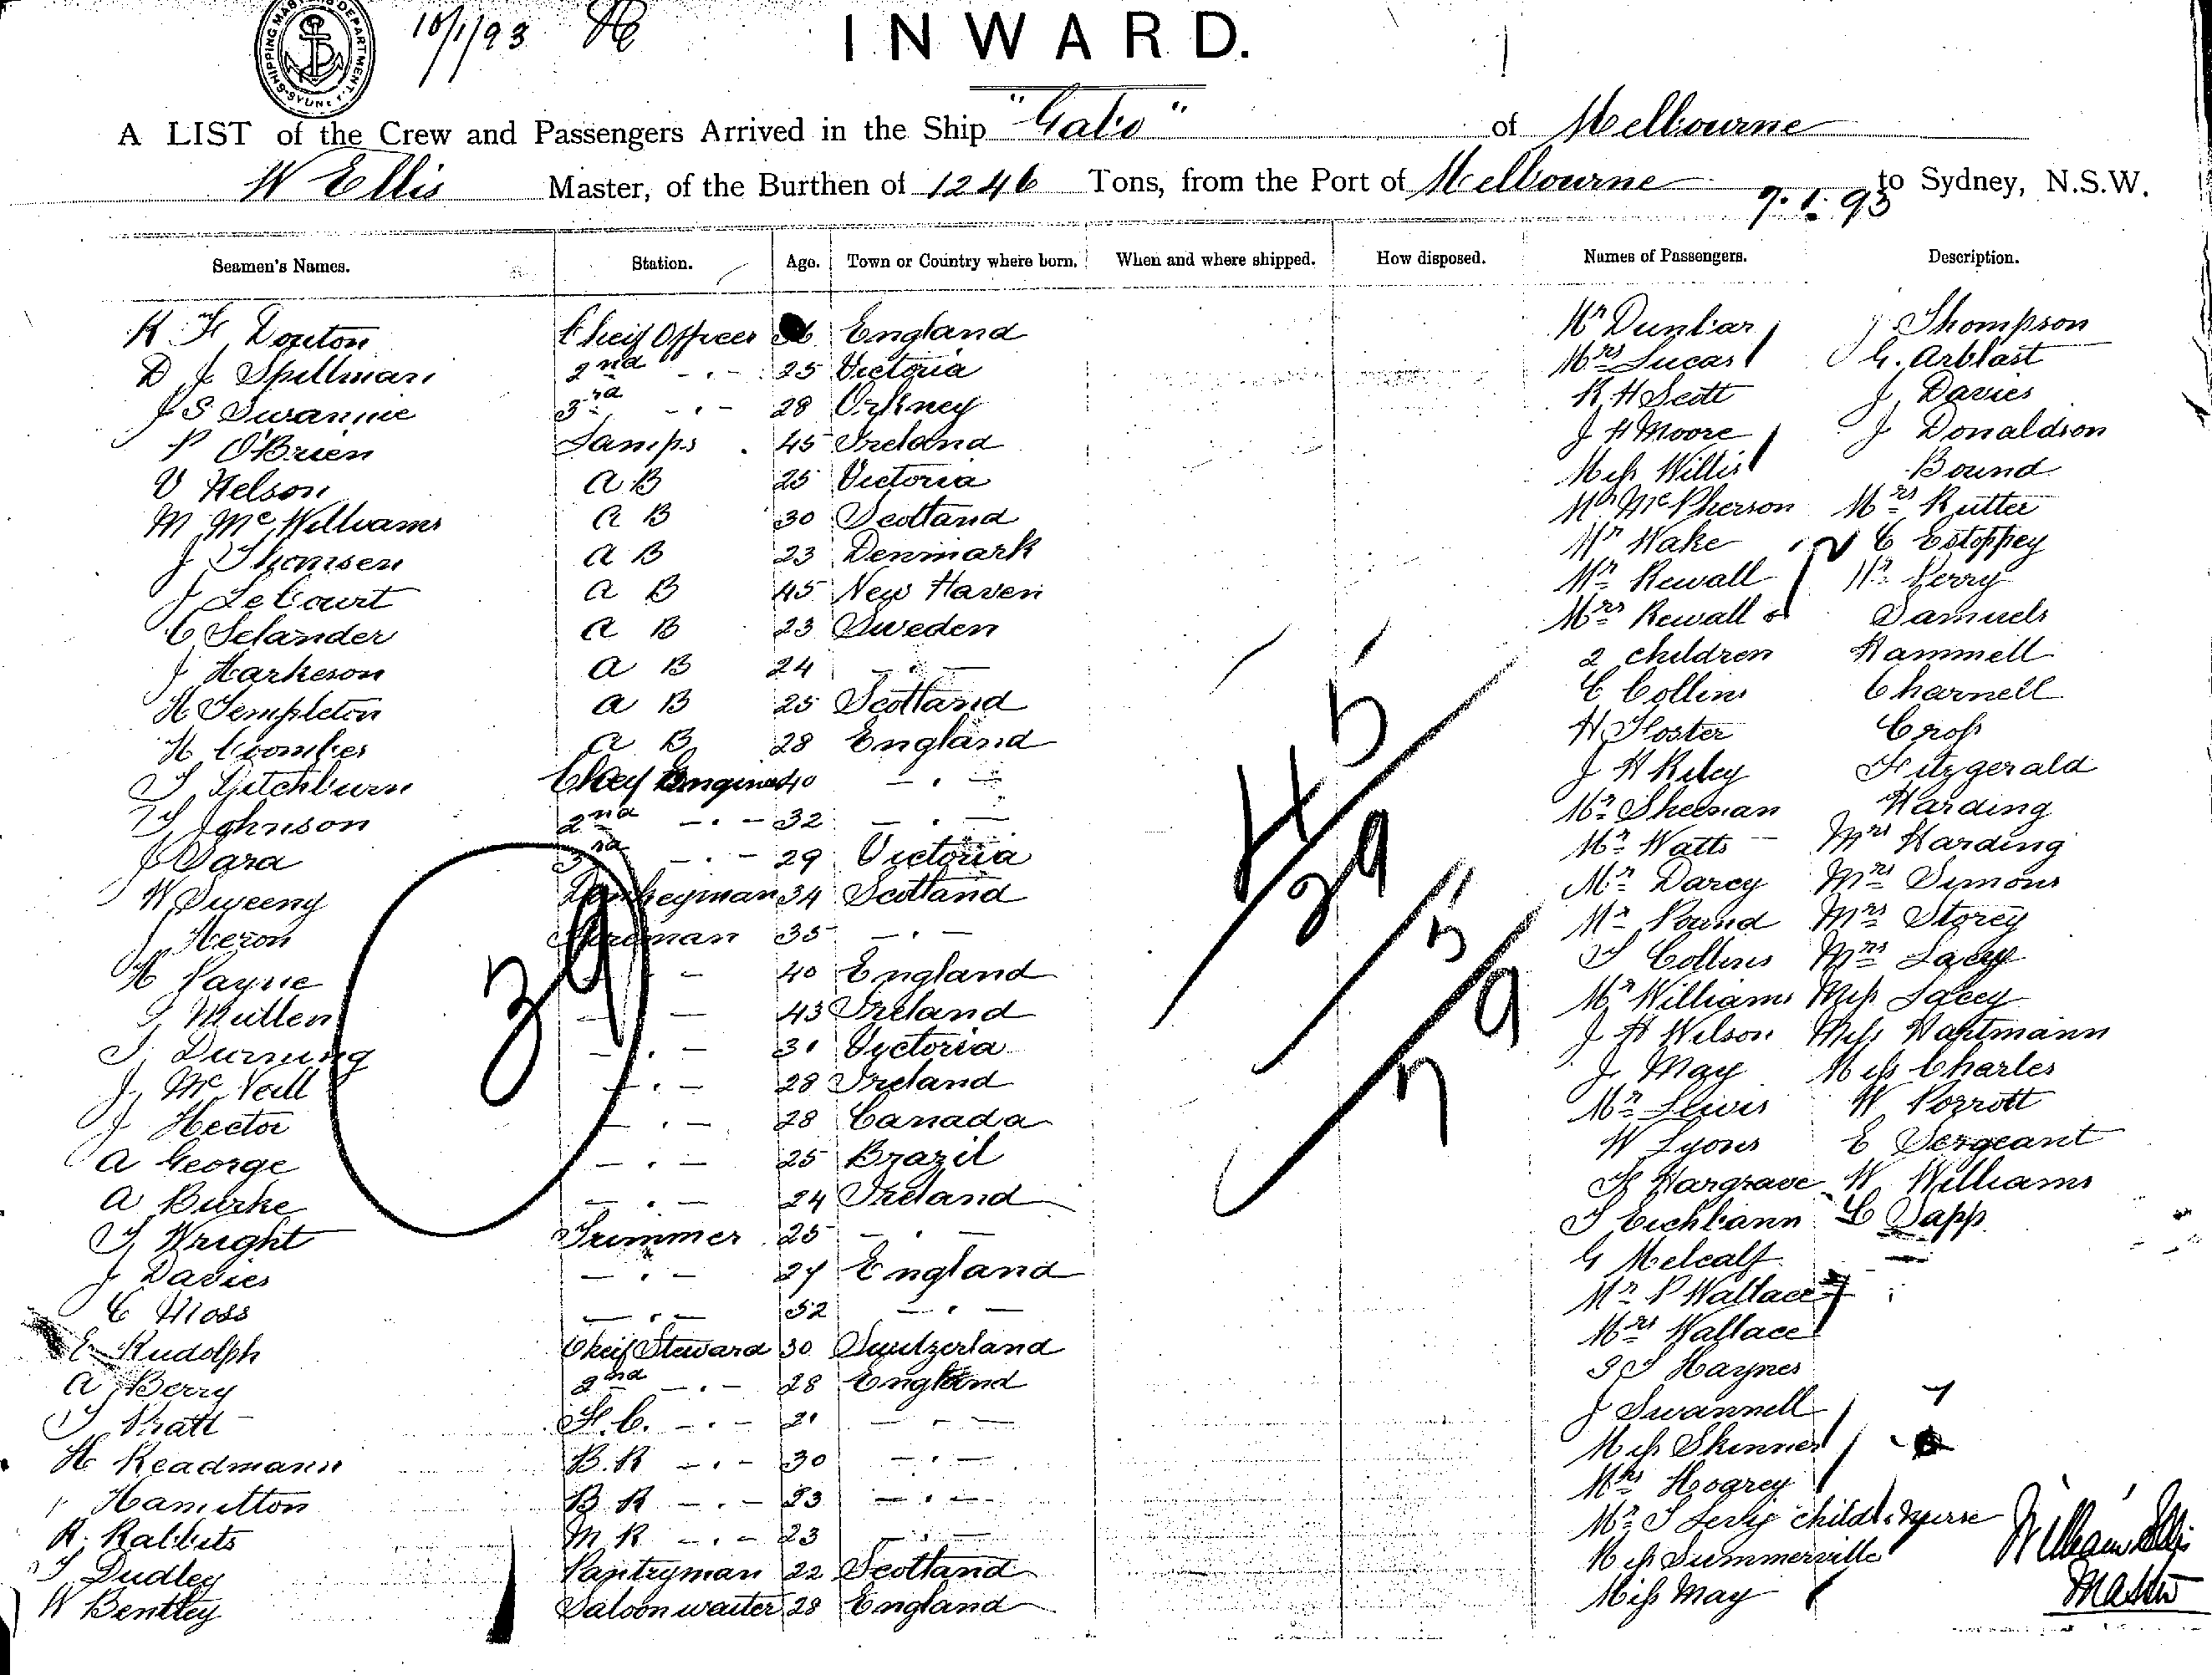 SHIPPING MASTER'S DEPARTMENT. SYDNEY
10/1/93
INWARD.
A LIST of the Crew and Passengers Arrived in the Ship "Gabo" of Melbourne
W Ellis Master, of the Burthen of 1246 Tons, from the Port of Melbourne 7.1.93 to Sydney, N.S.W.
Seamen's Names. Station. Age. Town or Country where born. When and where shipped. How disposed. Names of Passengers. Description.
Cheif Officer England Mr Dunbar J Thompson
D J Spillman 2nd -.- 25 Victoria Mrs Lucas G. Arblast
J S Swannie 3rd -.- 28 Orkney R H Scott J Davies
P O'Brien Lamps 45 Ireland J H Moore J Donaldson
V Nelson A B 25 Victoria Miss Willis Bound
M McWilliams A B 30 Scotland Mr McPherson Mrs Rutter
J Thomsen A B 23 Denmark Mr Wake C Estoppey
J LeCourt A B 45 New Haven Mr Rewall Mr Perry
C Selander A B 23 Sweden Mrs Rewall & Samuels
J Harkeson A B 24 -.- 2 children Hammell
H Templeton A B 25 Scotland C Collins Charnell
H Coombes A B 28 England H Foster Cross
T Ditchburn Cheif Engineer 40 -.- J H Riley Fitzgerald
T Johnson 2nd -.- 32 -.- Mr Sheenan Harding
J Sara 3rd -.- 29 Victoria Mr Watts Mrs Harding
W Sweeny Donkeyman 34 Scotland Mr Darcy Mrs Simons
J Heron Fireman 35 -.- Mr Pound Mrs Storey
H Payne - 40 England T Collins Mrs Lacey
J Mullen - 43 Ireland Mr Williams Miss Lacey
-.- 31 Victoria J H Wilson Miss Hartmann
J McNeill -.- 28 Ireland J May Miss Charles
J Hector -.- 28 Canada Mr Lewis W Porrott
A George -.- 25 Brazil W Lyons E Sergeant
A Burke -.- 24 Ireland F Hargrave W Williams
T Wright Trimmer 25 -.- T Eichbann L Tapp
J Davies -.- 27 England G Metcalf
C Moss -.- 52 -.- Mr P Wallace
E Rudolph Cheif Steward 30 Switzerland Mrs Wallace
A Berry 2nd -.- 28 England Haynes
T Pratt F.C. -.- 21 -.- J Swannell
H Readmann B.R -.- 30 -.- Miss Skinner
Hamilton B R -.- 23 -.- Mrs Hogrey
R. Rabbits M R -.- 23 -.- child & nurse
T Dudley Pantryman 22 Scotland Miss Summerville
W Bentley Saloon waiter 28 England Miss May
39
45
39
5
79
William Ellis
Master